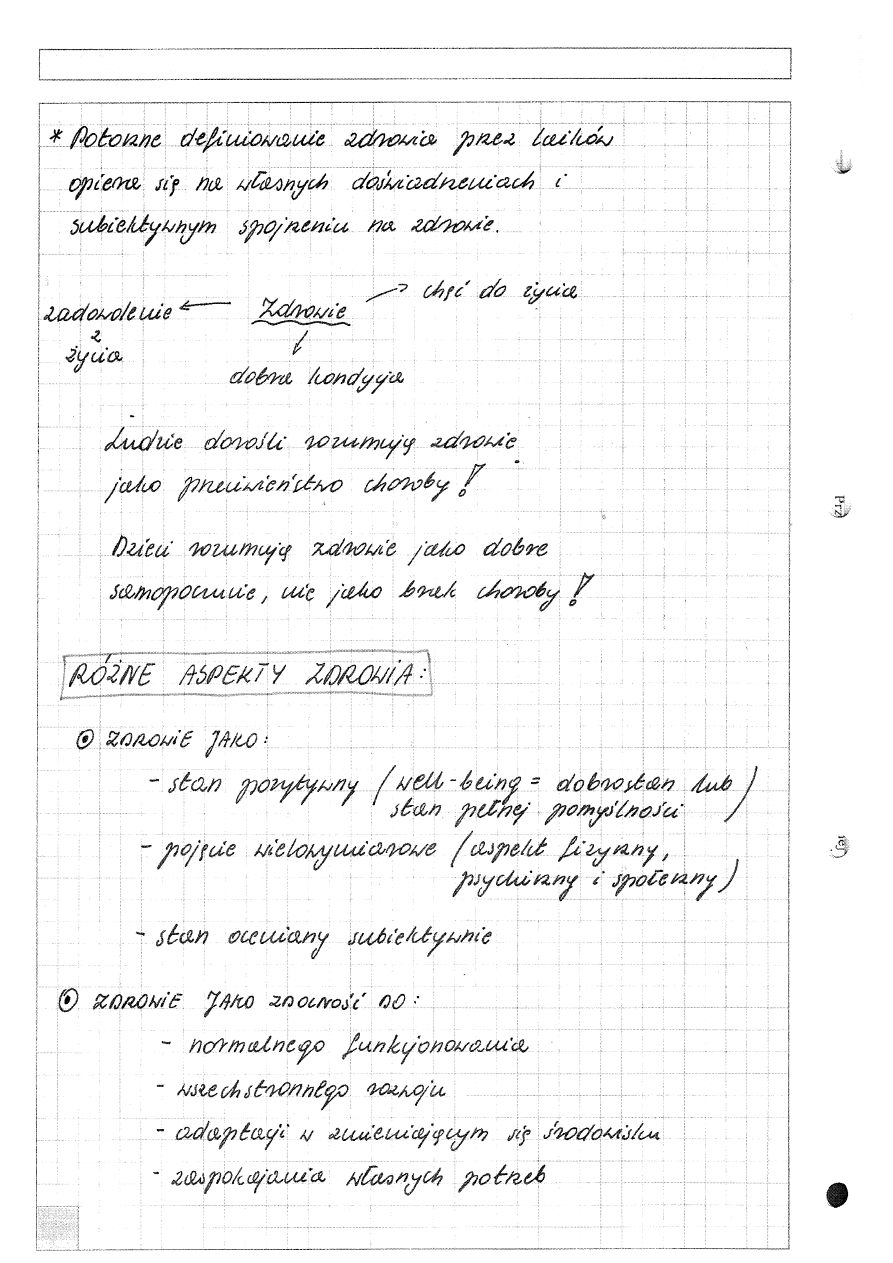 * Potoczne definiowanie zdrowia przez laików
opiera się na własnych doświadczeniach i
subiektywnym spojrzeniu na zdrowie.
zadowolenie ← Zdrowie → chęć do życia
z
życia
↓
dobra kondycja
Ludzie dorośli rozumują zdrowie
jako przeciwieństwo choroby!
Dzieci rozumują zdrowie jako dobre
samopoczucie, nie jako brak choroby!
RÓŻNE ASPEKTY ZDROWIA:
⊙ ZDROWIE JAKO:
- stan pozytywny (well-being = dobrostan lub
stan pełnej pomyślności)
- pojęcie wielowymiarowe (aspekt fizyczny,
psychiczny i społeczny)
- stan oceniany subiektywnie
⊙ ZDROWIE JAKO ZDOLNOŚĆ DO:
- normalnego funkcjonowania
- wszechstronnego rozwoju
- adaptacji w zmieniającym się środowisku
- zaspokajania własnych potrzeb
Prz